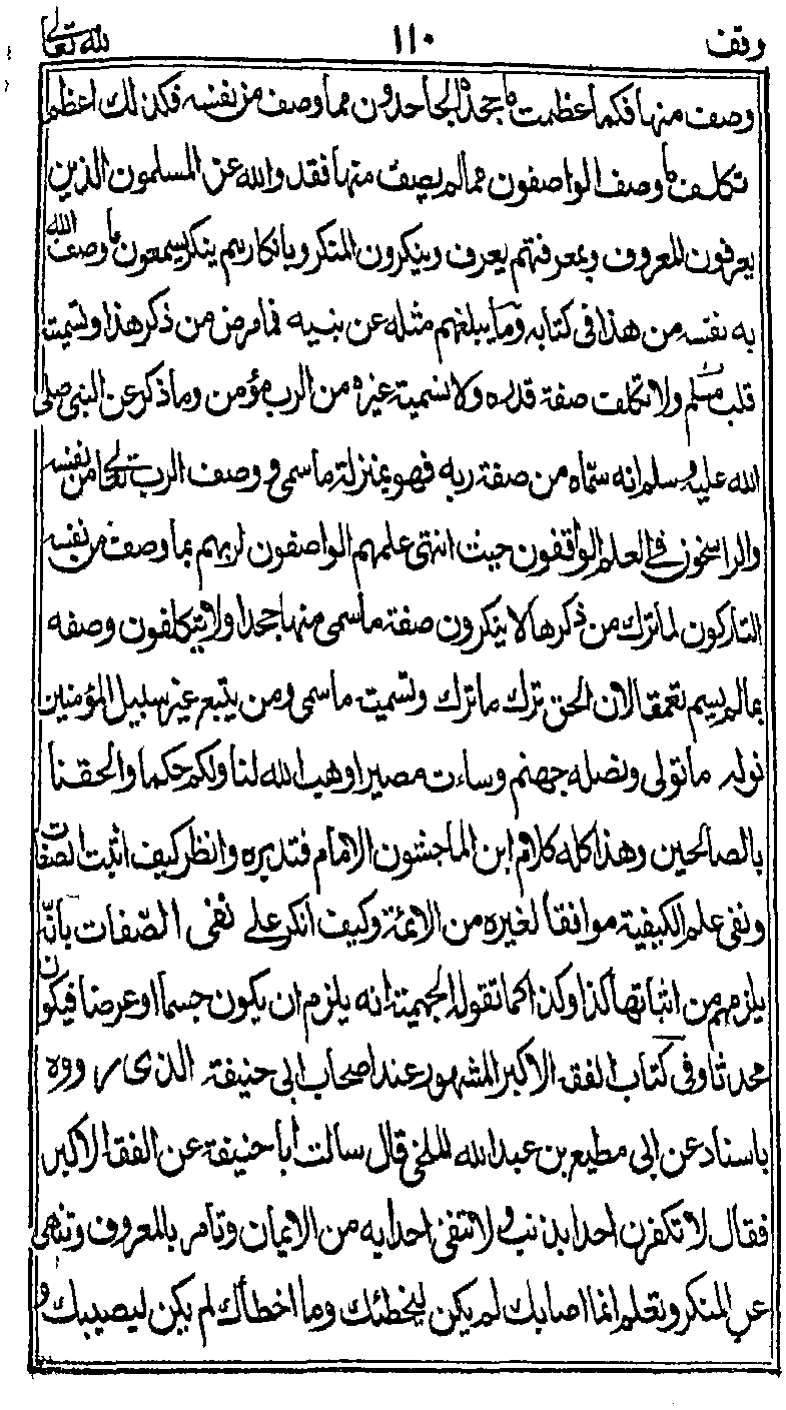 وقف ١١٠ لله تعالى
وصف منها فكما اعظمت ما جحده الجاحدون مما وصف من نفسه فكذلك اعظم
تكلف ما وصف الواصفون مما لم يصف منها فقد والله عز المسلمون الذين
يعرفون المعروف وبمعرفتهم يعرف وينكرون المنكر وبانكارهم ينكر يسمعون ما وصف الله
به نفسه من هذا في كتابه وما يبلغهم مثله عن نبيه فما مرض من ذكر هذا وتسميته
قلب مسلم ولا تكلف صفة قدره ولا تسمية غيره من الرب مؤمن وما ذكر عن النبي صلى
الله عليه وسلم انه سماه من صفة ربه فهو بمنزلة ما سمى ووصف الرب تعالى من نفسه
والراسخون في العلم الواقفون حيث انتهى علمهم الواصفون لربهم بما وصف من نفسه
التاركون لما ترك من ذكرها لا ينكرون صفة ما سمى منها جحدا ولا يتكلفون وصفه
بما لم يسم تعمقا لان الحق ترك ما ترك وتسميت ما سمى ومن يتبع غير سبيل المؤمنين
نوله ما تولى ونصله جهنم وساءت مصيرا وهب الله لنا ولكم حكما والحقنا
بالصالحين وهذا كله كلام ابن الماجشون الامام فتدبره وانظر كيف اثبت الصفات
ونفى علم الكيفية موافقا لغيره من الائمة وكيف انكر على نفى الصّفات بانّه
يلزمهم من اثباتها كذا وكذا كما تقوله الجهمية انه يلزم ان يكون جسما او عرضا فيكون
محدثا وفى كتاب الفقه الاكبر المشهور عند اصحاب ابى حنيفة الذى رووه
باسناد عن ابى مطيع بن عبد الله البلخى قال سالت أبا حنيفة عن الفقه الاكبر
فقال لا تكفرن احدا بذنب ولا تنفى احدا به من الايمان وتامر بالمعروف وتنهى
عن المنكر وتعلم انما اصابك لم يكن ليخطئك وما اخطأك لم يكن ليصيبك و